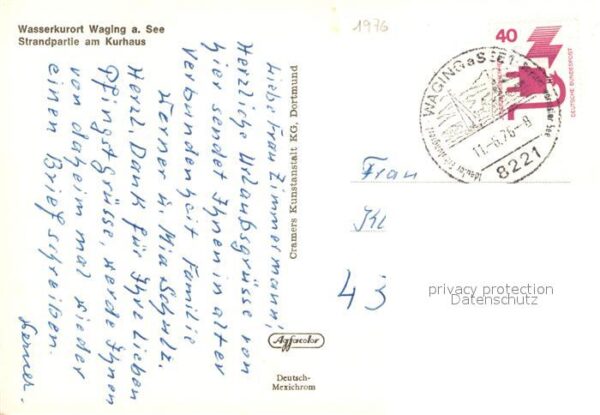 Wasserkurort Waging a. See
Strandpartie am Kurhaus
1976
Liebe Frau Zimmermann,
Herzliche Urlaubsgrüsse von
hier sendet Ihnen in alter
Verbundenheit Familie
Werner u. Mia Schulz.
Herzl. Dank für Ihre lieben
Pfingstgrüsse, werde Ihnen
von daheim mal wieder
einen Brief schreiben.
Werner.
Cramers Kunstanstalt KG, Dortmund
Agfacolor
Deutsch-
Mexichrom
40
DEUTSCHE BUNDESPOST
WAGING a SEE 1
11.-6.76-8
8221
Frau
Kl
43
privacy protection
Datenschutz